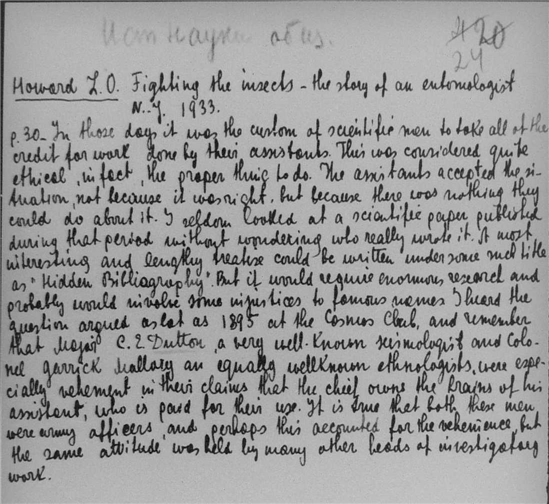 об из.
20
24
Howard L.O. Fighting the insects – the story of an entomologist
N.-Y. 1933.
p.30 – In those days it was the custom of scientific men to take all of the
credit for work done by their assistants. This was considered quite
ethical, in fact, the proper thing to do. The assistants accepted the si-
tuation, not because it was right, but because there was nothing they
could do about it. I seldom looked at a scientific paper published
during that period without wondering who really wrote it. A most
interesting and lengthy treatise could be written under some such title
as "Hidden Bibliography". But it would require enormous research and
probably would involve some injustices to famous names I heard the
question argued as lat as 1895 at the Cosmos Club, and remember
that Major C.E Dutton, a very well-known seismologist and Colo-
nel Garrick Mallory an equally wellknown ethnologists, were espe-
cially vehement in their claims that the chief owns the brains of his
assistant, who is paid for their use. It is true that both these men
were army officers, and perhaps this accounted for the vehenience, but
the same attitude was held by many other heads of investigatory
work.